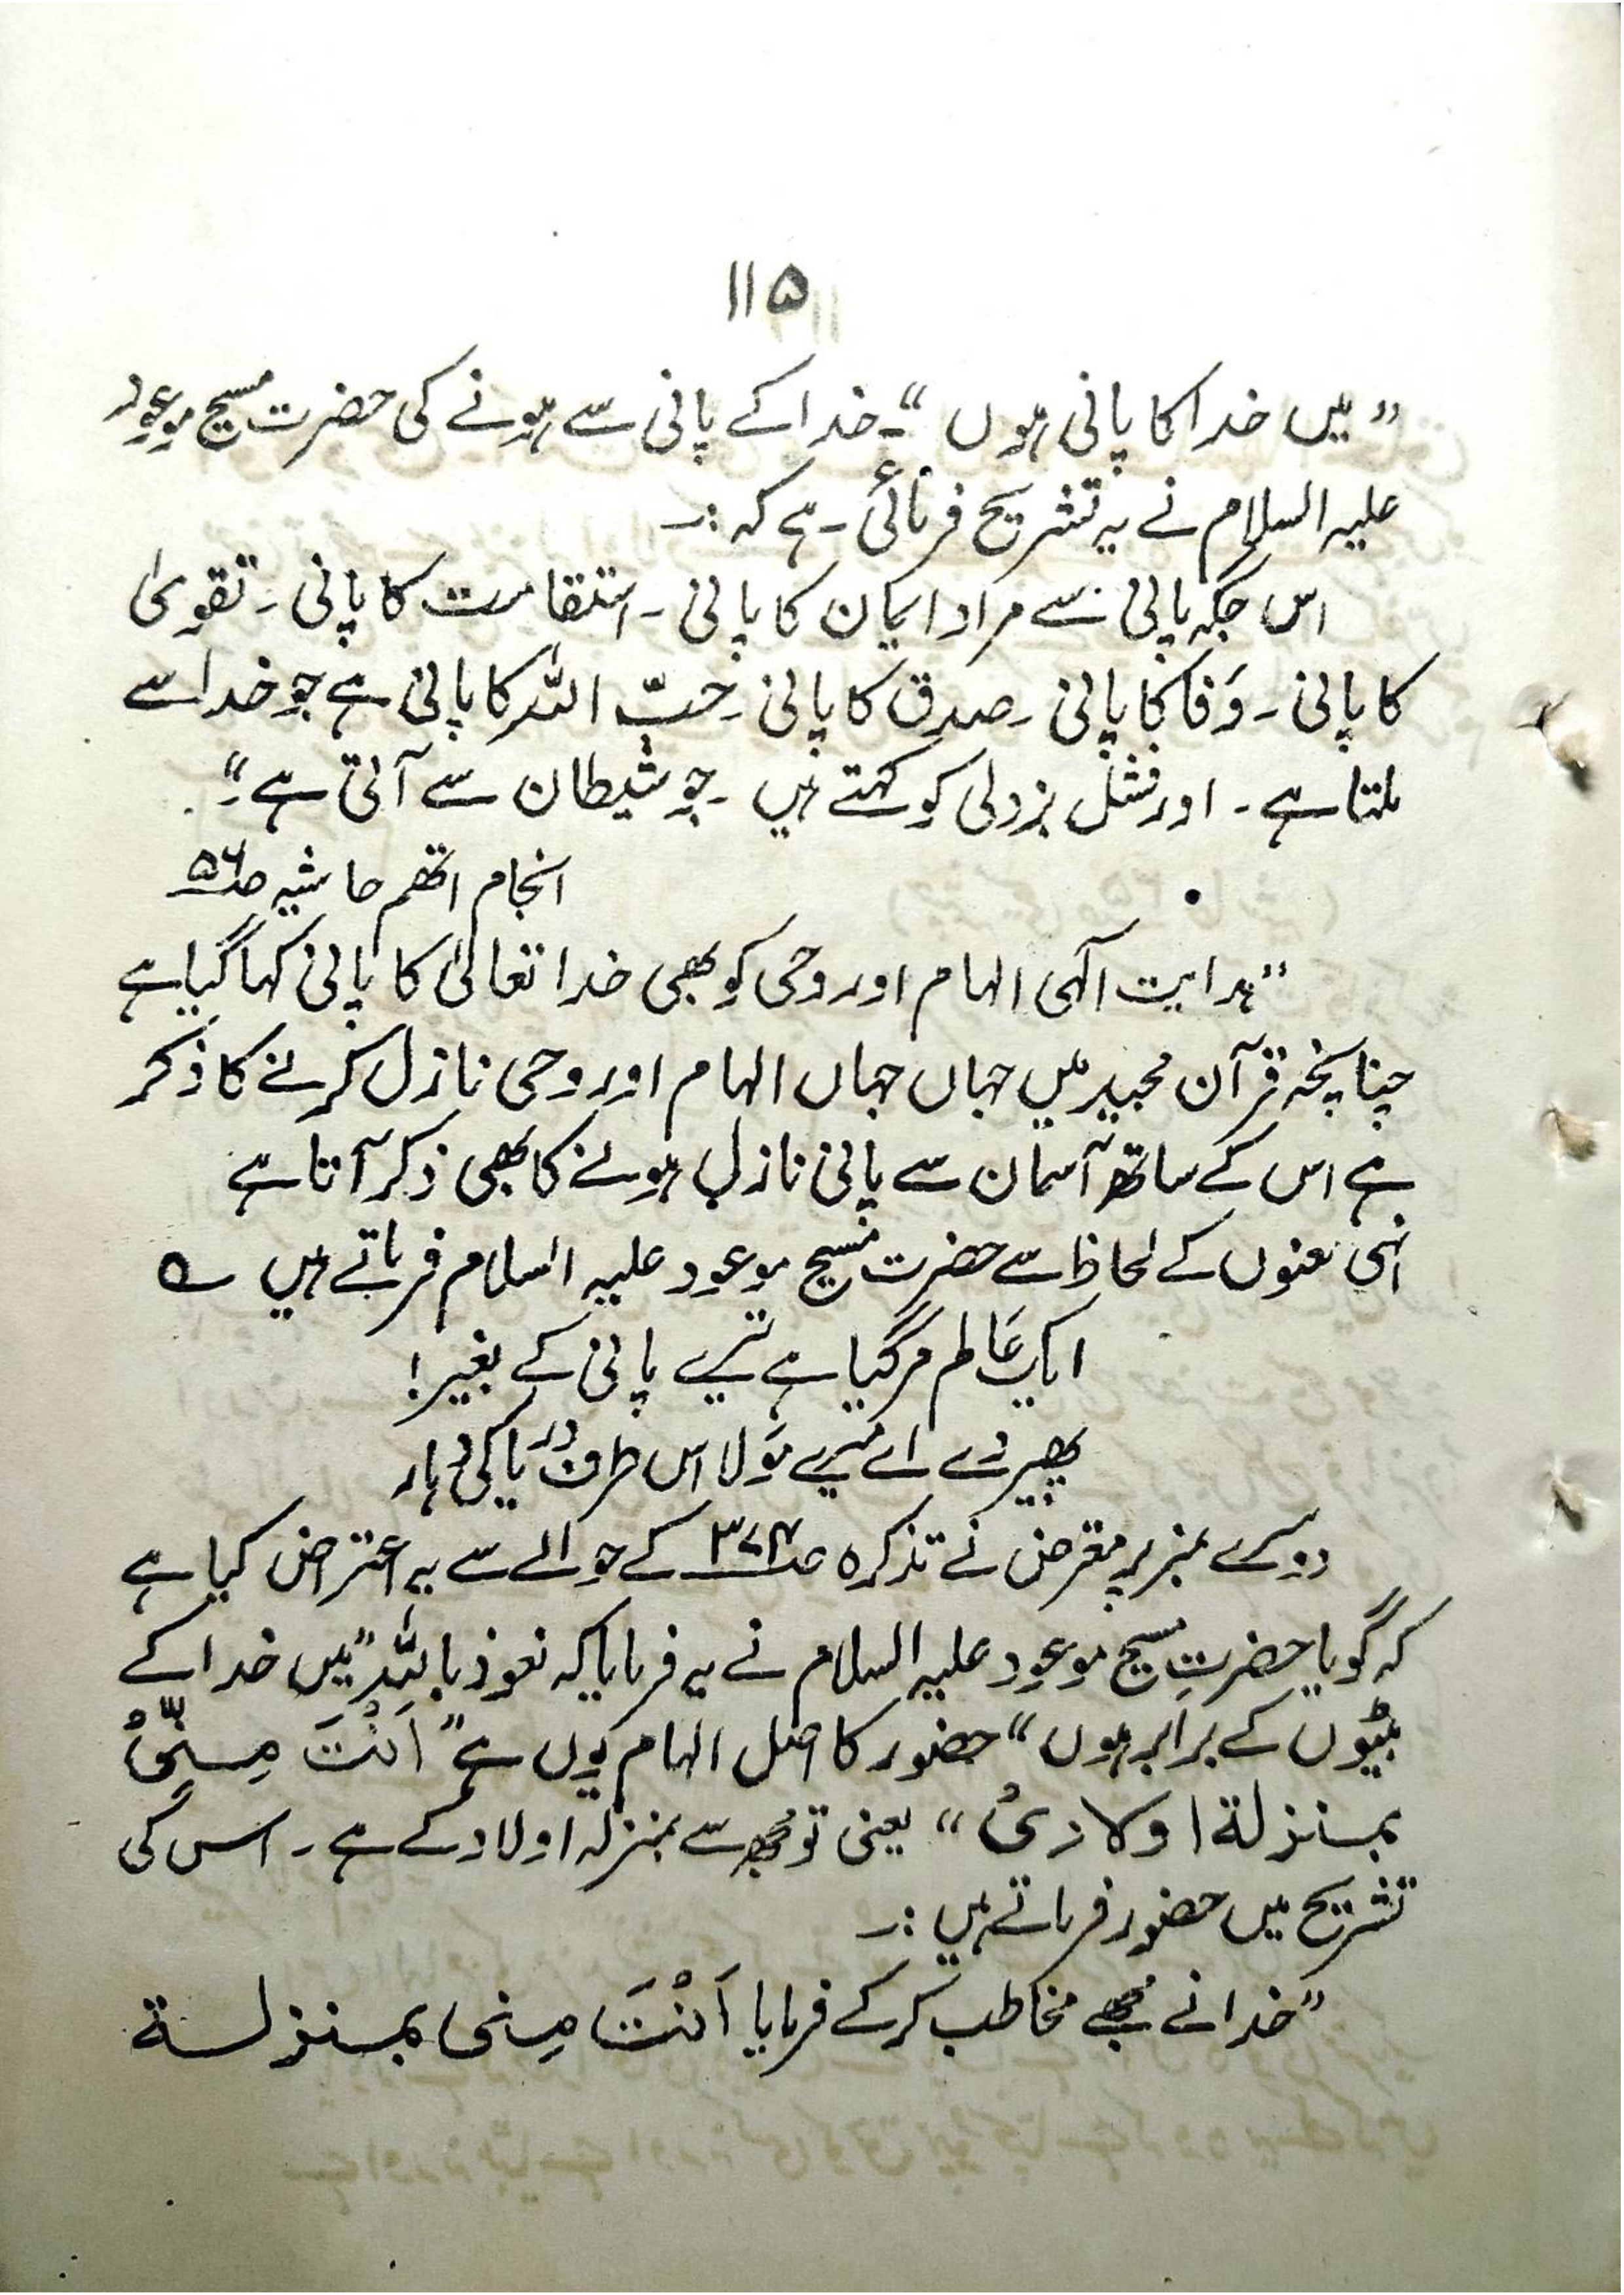 ۱۱۵
”میں خدا کا پانی ہوں“۔ خدا کے پانی سے ہونے کی حضرت مسیح موعود
علیہ السلام نے یہ تشریح فرمائی ہے کہ :۔
اس جگہ پانی سے مراد ایمان کا پانی ۔ استقامت کا پانی ۔ تقویٰ
کا پانی ۔ وَفا کا پانی ۔ صدق کا پانی ۔ حُبّ اللہ کا پانی ہے جو خدا سے
ملتا ہے ۔ اور فشل بزدلی کو کہتے ہیں ۔ جو شیطان سے آتی ہے ۔“
انجام اتھم حاشیہ صـ۵۶
”ہدایت الٰہی الہام اور وحی کو بھی خدا تعالیٰ کا پانی کہا گیا ہے
چنانچہ قرآن مجید میں جہاں جہاں الہام اور وحی نازل کرنے کا ذکر
ہے اس کے ساتھ آسمان سے پانی نازل ہونے کا بھی ذکر آتا ہے
انہی معنوں کے لحاظ سے حضرت مسیح موعود علیہ السلام فرماتے ہیں ؎
ایک عَالم مر گیا ہے تیرے پانی کے بغیر !
پھیر دے اے میرے مَولا اس طرف دریا کی دہار
دوسرے نمبر پر معترض نے تذکرہ صـ کے حوالے سے یہ اعتراض کیا ہے
کہ گویا حضرتِ مسیح موعود علیہ السلام نے یہ فرمایا کہ نعوذ باللہ ”میں خدا کے
بیٹوں کے برابر ہوں“ حضور کا اصل الہام یُوں ہے ”اَنْتَ مِنِّیْ
بمنزلة اولادیْ“ یعنی تو مجھ سے بمنزلہ اولاد کے ہے ۔ اس کی
تشریح میں حضور فرماتے ہیں :۔
”خدا نے مجھے مخاطب کر کے فرمایا اَنْتَ مِنی بمنزلة